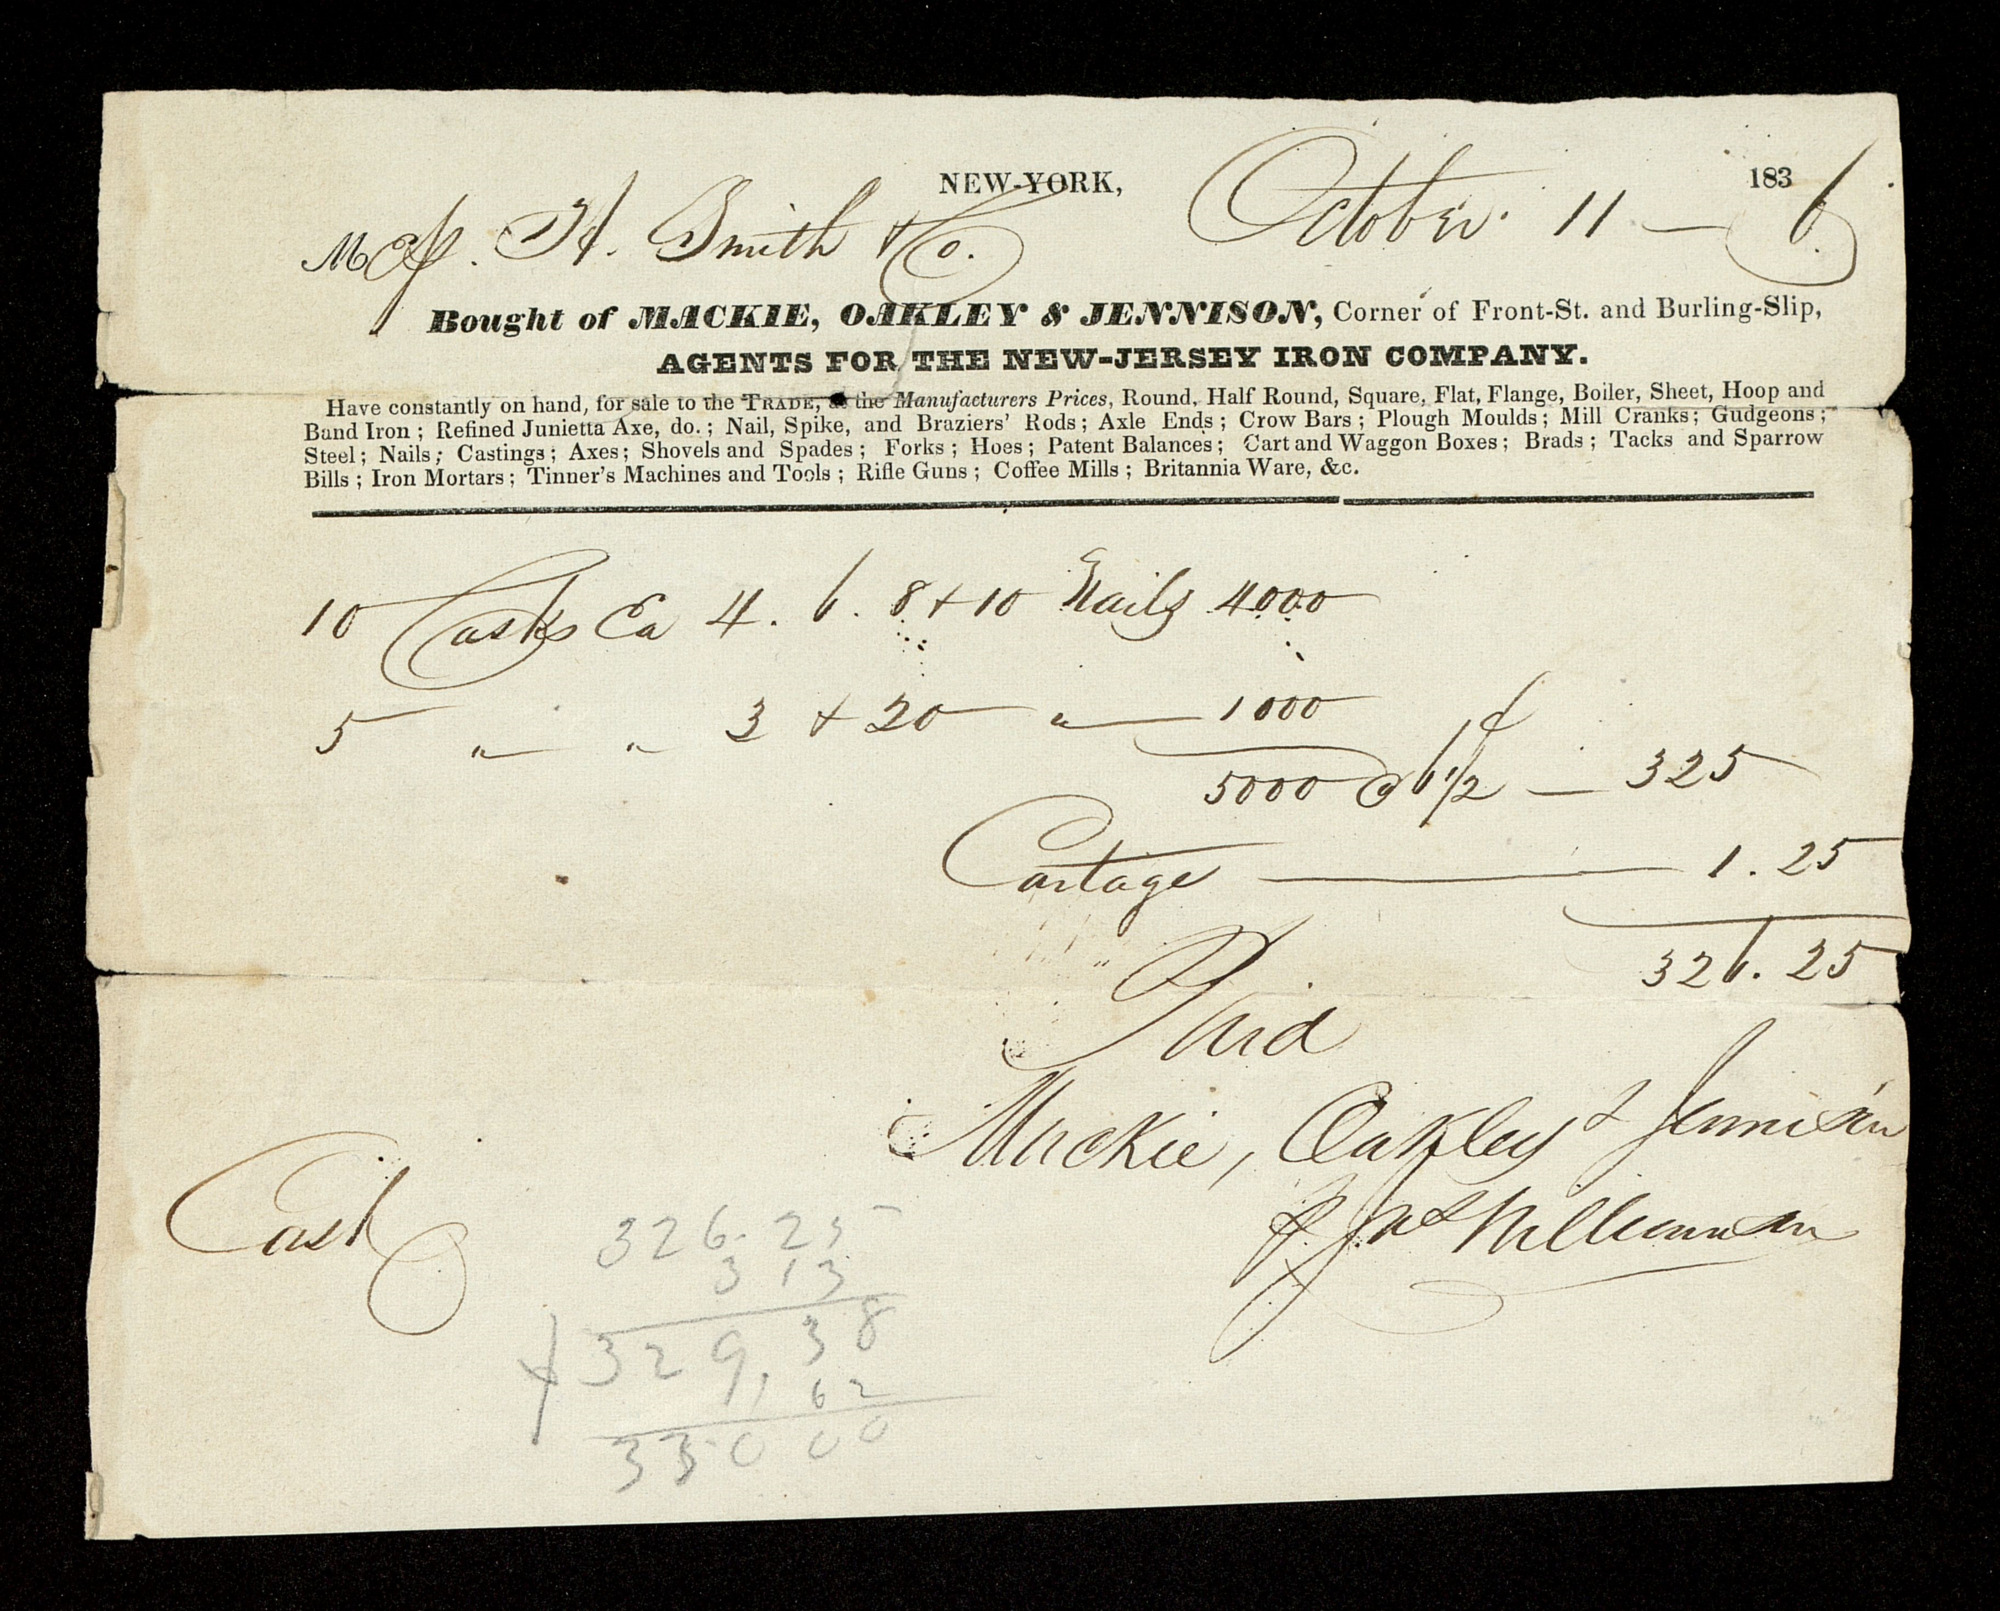 NEW-YORK, October 11 — 1836
Mess. H. Smith & Co.
Bought of MACKIE, OAKLEY & JENNISON, Corner of Front-St. and Burling-Slip,
AGENTS FOR THE NEW-JERSEY IRON COMPANY.
Have constantly on hand, for sale to the TRADE, at the Manufacturers Prices, Round, Half Round, Square, Flat, Flange, Boiler, Sheet, Hoop and
Band Iron; Refined Junietta Axe, do.; Nail, Spike, and Braziers' Rods; Axle Ends; Crow Bars; Plough Moulds; Mill Cranks; Gudgeons;
Steel; Nails; Castings; Axes; Shovels and Spades; Forks; Hoes; Patent Balances; Cart and Waggon Boxes; Brads; Tacks and Sparrow
Bills; Iron Mortars; Tinner's Machines and Tools; Rifle Guns; Coffee Mills; Britannia Ware, &c.
10 Casks Ea 4. 6. 8 + 10 Nails 4000
5 " " 3 + 20 " 1000
5000 @ 6 1/2 — 325
Cartage — 1.25
326.25
Paid
Mackie, Oakley & Jennison
Cash
326.25
3 13
329,38
62
33000